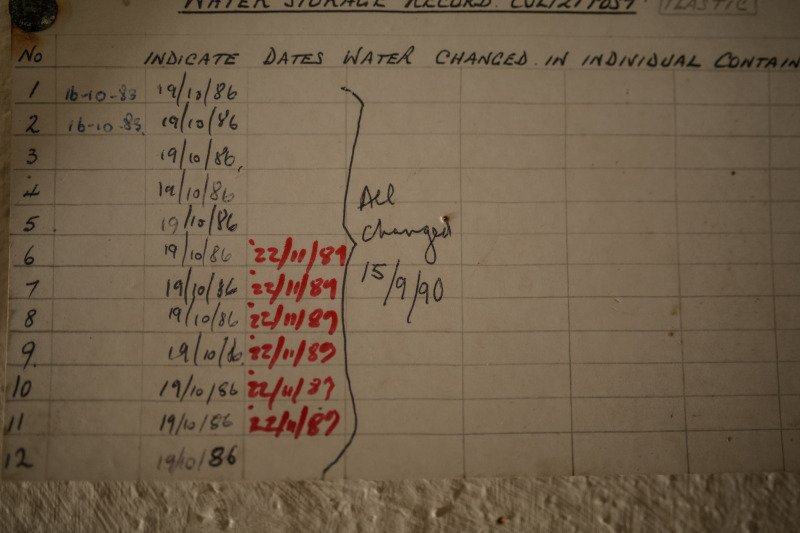 WATER STORAGE RECORD. POST (PLASTIC)
NO INDICATE DATES WATER CHANGED. IN INDIVIDUAL CONTAIN
1 16-10-83 19/10/86
2 16-10-83. 19/10/86
3 19/10/86.
4 19/10/86
5. 19/10/86
6 19/10/86 22/11/89
7 19/10/86 22/11/89
8 19/10/86 22/11/89
9. 19/10/86 22/11/89
10 19/10/86 22/11/89
11 19/10/86 22/11/89
12 19/10/86
All
changed
15/9/90